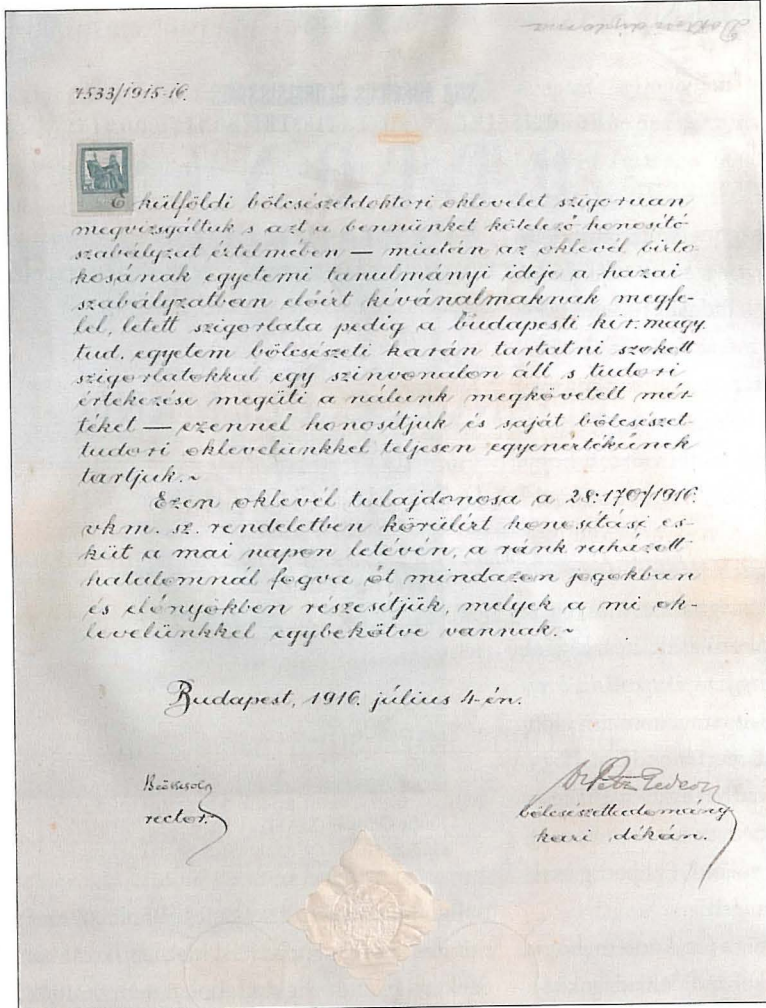 Doktori diploma
7533/1915-16.
E külföldi bölcsészetdoktori oklevelet szigoruan
megvizsgáltuk s azt a bennünket kötelező honosító
szabályzat értelmében — miután az oklevél birto
kosának egyetemi tanulmányi ideje a hazai
szabályzatban előirt kivánalmaknak megfe-
lel, letett szigorlata pedig a budapesti kir. magy.
tud. egyetem bölcsészeti karán tartatni szokott
szigorlatokkal egy szinvonalon állt s tudori
értekezése megüti a nálunk megkövetelt mér-
téket — ezennel honosítjuk és saját bölcsészet-
tudori oklevelünkkel teljesen egyenértékünek
tartjuk.~
Ezen oklevél tulajdonosa a 28.170/1916.
vkm. sz. rendeletben körülirt honosítási es-
küt a mai napon letévén, a ránk ruházott
hatalomnál fogva őt mindazon jogokban
és előnyökben részesítjük, melyek a mi ok-
levelünkkel egybekötve vannak.~
Budapest, 1916. július 4-én.
rector.
Dr Petz Gedeon
bölcsészettudomány
kari dékán.